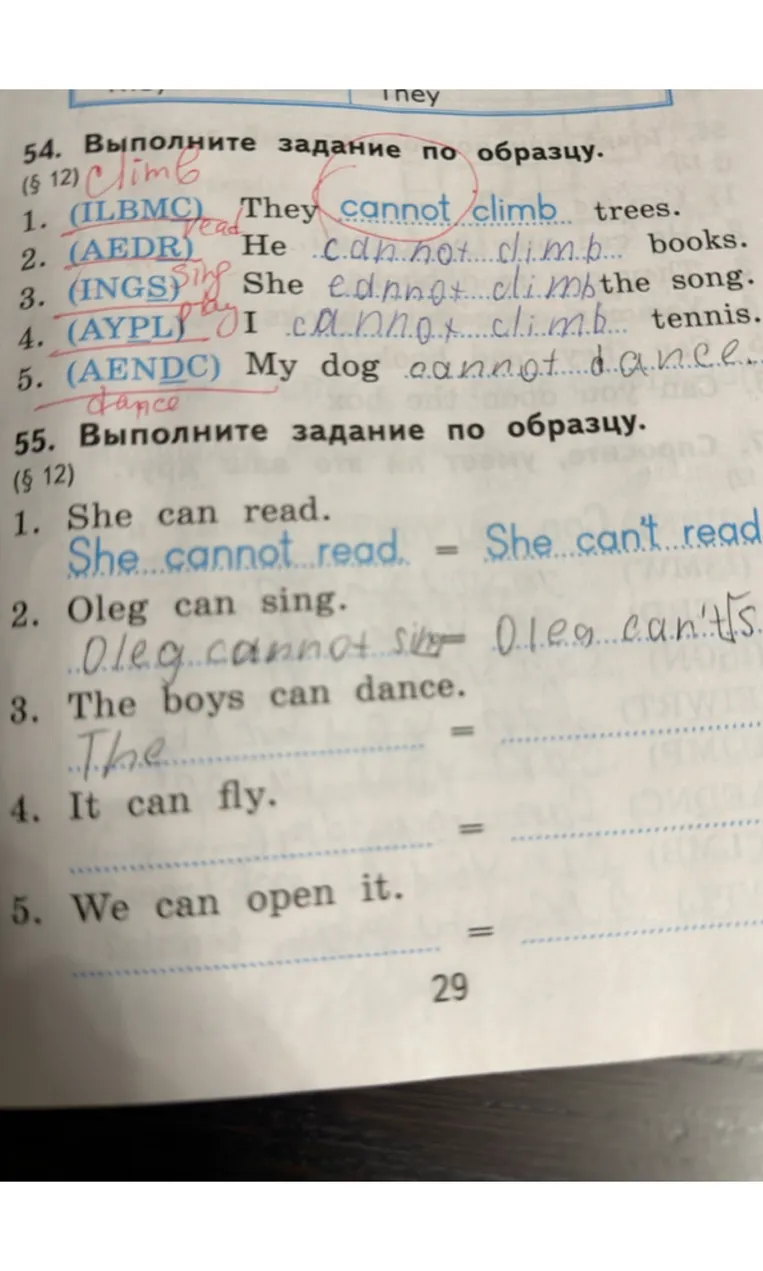 They
54. Выполните задание по образцу.
(§ 12) climb
1. (ILBMC) They cannot climb trees.
read
2. (AEDR) He cannot climb books.
sing
3. (INGS) She cannot climb the song.
play
4. (AYPL) I cannot climb tennis.
5. (AENDC) My dog cannot dance.
dance
55. Выполните задание по образцу.
(§ 12)
1. She can read.
She cannot read. = She can't read
2. Oleg can sing.
Oleg cannot sing = Oleg can't s
3. The boys can dance.
The =
4. It can fly.
=
5. We can open it.
=
29